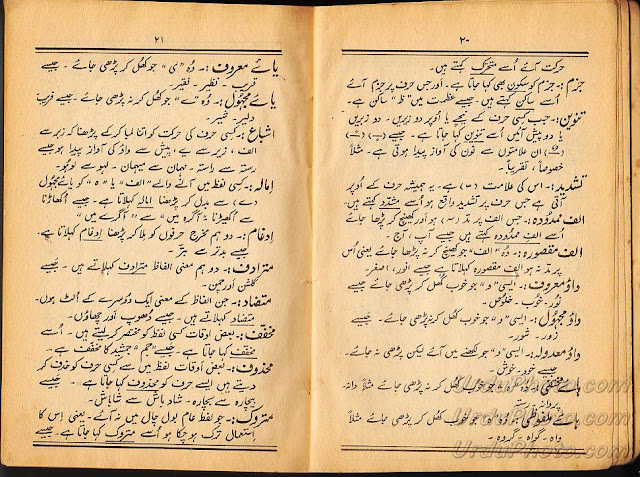 ۲۰
حرکت آئے اُسے متحرک کہتے ہیں۔
جزم:۔ جزم کو سکون بھی کہا جاتا ہے۔ اور جس حرف پر جزم آئے
اُسے ساکن کہتے ہیں۔ جیسے عظمت میں "ظ" ساکن ہے۔
تنوین:۔ جب کسی حرف کے نیچے یا اُوپر دو زبریں۔ دو زیریں
یا دو پیش آئیں اُسے تنوین کہا جاتا ہے۔ جیسے
ان علامتوں سے نون کی آواز پیدا ہوتی ہے۔ مثلاً
خصوصاً، تقریباً۔
تشدید:۔ اس کی علامت (ّ) ہے۔ یہ ہمیشہ حرف کے اُوپر
آتی ہے جس حرف پر تشدید واقع ہو اُسے مشدّد کہتے ہیں۔
الف ممدُودہ:۔ جس الف پر مد (ٓ) ہو اور کھینچ کر پڑھا جائے
اُسے الف ممدُودہ کہتے ہیں جیسے آپ، آج۔
الف مقصُورہ:۔ وُہ "الف" جو کھینچ کر نہ پڑھا جائے یعنی اُس
پر مد نہ ہو الف مقصُورہ کہلاتا ہے جیسے انور، اصغر۔
واؤ معرُوف:۔ ایسی "و" جو خوب کھُل کر پڑھی جائے جیسے
نُور۔ خُوب۔ خلُوص۔
واؤ مجہُول:۔ ایسی "و" جو خوب کھُل کر نہ پڑھی جائے۔ جیسے
زور۔ شور۔
واؤ معدولہ:۔ ایسی "و" جو لکھنے میں آئے لیکن پڑھی نہ جائے۔
جیسے خود۔ خوش۔
ہائے مختفی:۔ وُہ "ہ" جو خوب کھُل کر نہ پڑھی جائے مثلاً دانہ۔
پروانہ۔ رستہ
ہائے ملفُوظی:۔ وُہ "ہ" جو خوب کھُل کر پڑھی جائے مثلاً
واہ۔ گواہ۔ گروہ۔
۲۱
یائے معروف:۔ وُہ "ی" جو کھُل کر پڑھی جائے۔ جیسے
قریب۔ نظیر۔ فقیر۔
یائے مجہُول:۔ وُہ "ے" جو کھُل کر نہ پڑھی جائے۔ جیسے فریب
دلیر۔ شیر۔
اشباع:۔ کسی حرف کی حرکت کو اتنا لمبا کر کے پڑھنا کہ زبر سے
الف، زیر سے یے، پیش سے واؤ کی آواز پیدا ہو جیسے
رستہ سے راستہ۔ مہمان سے میہمان۔ لہو سے لوہو۔
امالہ:۔ کسی لفظ میں آنے والے "الف" یا "ہ" کو یائے مجہُول
(ے) سے بدل کر پڑھنا امالہ کہلاتا ہے۔ جیسے اکھاڑنا
سے اکھیڑنا "آگرہ میں" سے "آگرے میں"
اِدغام:۔ دو ہم مخرج حرفوں کو ملا کر پڑھنا اِدغام کہلاتا ہے۔
جیسے بدتر سے بتّر۔
مترادف:۔ دو ہم معنی الفاظ مترادف کہلاتے ہیں۔ جیسے
گلشن اور چمن۔
متضاد:۔ جن الفاظ کے معنی ایک دُوسرے کے اُلٹ ہوں۔
متضاد کہلاتے ہیں۔ جیسے دُھوپ اور چھاؤں۔
مخفّف:۔ بعض اوقات کسی لفظ کو مختصر کر لیتے ہیں۔ اُسے
مخفف کہا جاتا ہے۔ جیسے "جم" جمشید کا مخفّف ہے۔
محذوف:۔ بعض اوقات کسی لفظ میں سے کسی حرف کو حذف کر
دیتے ہیں ایسے حرف کو محذوف کہا جاتا ہے۔ جیسے
بیچارہ سے بچارہ۔ شاد باش سے شاباش۔
متروک:۔ جو لفظ عام بول چال میں نہ آئے۔ یعنی اِس کا
اِستعمال ترک ہو چکا ہو اُسے متروک کہا جاتا ہے۔ جیسے
UrduPhoto.com
UrduPhoto.com
UrduPhoto.com